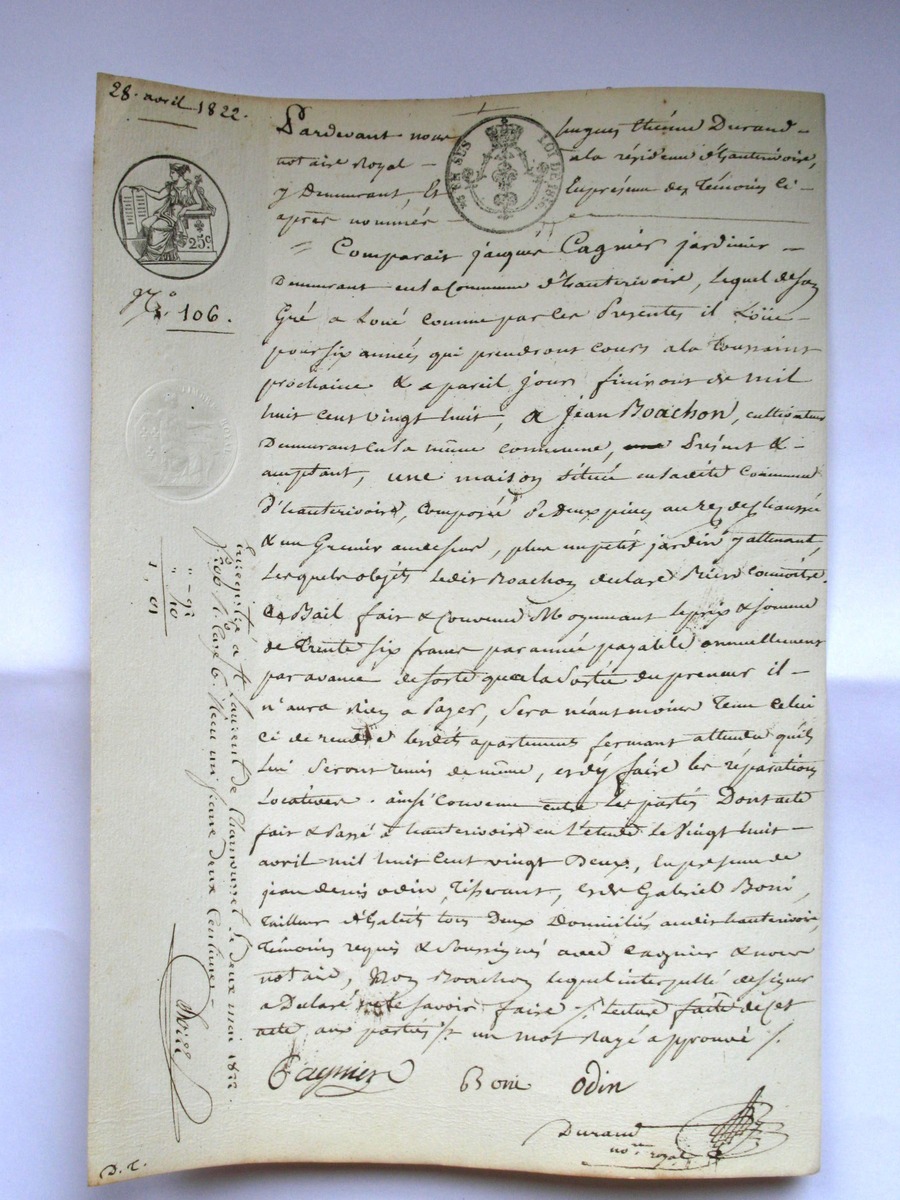 28. avril 1822.
Pardevant nous Jaques Etiénne Durand
notaire Royal a la résidence d'hauterivoire,
y Demeurant, Et En présence des Témoins Ci-
après nommés
EN SUS
LOI DE
25c
Comparait jacques Cagnier jardinier
Demeurant en la Commune d'hauterivoire, Lequel de son
Gré a Loué comme par Ces Presentes il Loüe
pour six années qui prendront cours a la toussaint
N.° 106.
prochaine & a pareil jours finiront de mil
huit cent vingt huit, a Jean Boachon, cultivateur
Demeurant en la même commune, Présent &
acceptant, une maison Située en la dite Commune
D'hauterivoire, Composée de Deux pièces au rez de Chaussée
& un Grenier au dessus, plus un petit jardin y attenant,
Lesquels objets ledit Boachon declare Bien Connoitre.
Ce Bail fait & Convenu Moyennant le prix & somme
de trente six francs par année payable annuellement
par avance de sorte qu'a la Sortie du preneur il
n'aura Rien a Payer, Sera néantmoins Tenu Celui
ci de rendre lesdits apartements fermant attendu qu'ils
lui Seront remis de même, et d'y faire les réparations
Locatives. ainsi Convenu entre les parties Dont acte
fait & Passé à hauterivoire en l'etude le Vingt huit
avril mil huit Cent vingt Deux, En présence de
jean denis odin, Tisserant, et de Gabriel Boni,
Tailleur d'habits tous Deux Domiciliés audit hauterivoire,
Témoins requis & Soussignés avec Cagnier & nous
notaire, Non Boachon lequel interpellé de signer
a Declaré ne le Savoir faire /. lecture faite de cet
acte aux parties /. un mot Rayé approuvé /.
Cagnier Boni odin
Durand
no.re royal
Enregistré a St Laurent de Chamousset le deux mai 1822
reçu un franc deux Centimes
1, 01
D. T.